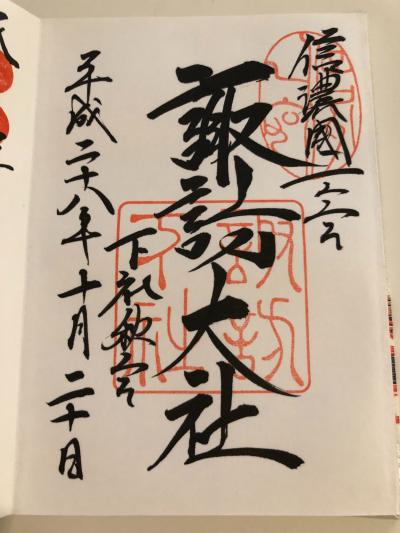 信濃國一宮
諏訪大社
下社秋宮
平成二十八年十月二十日
諏訪
下社